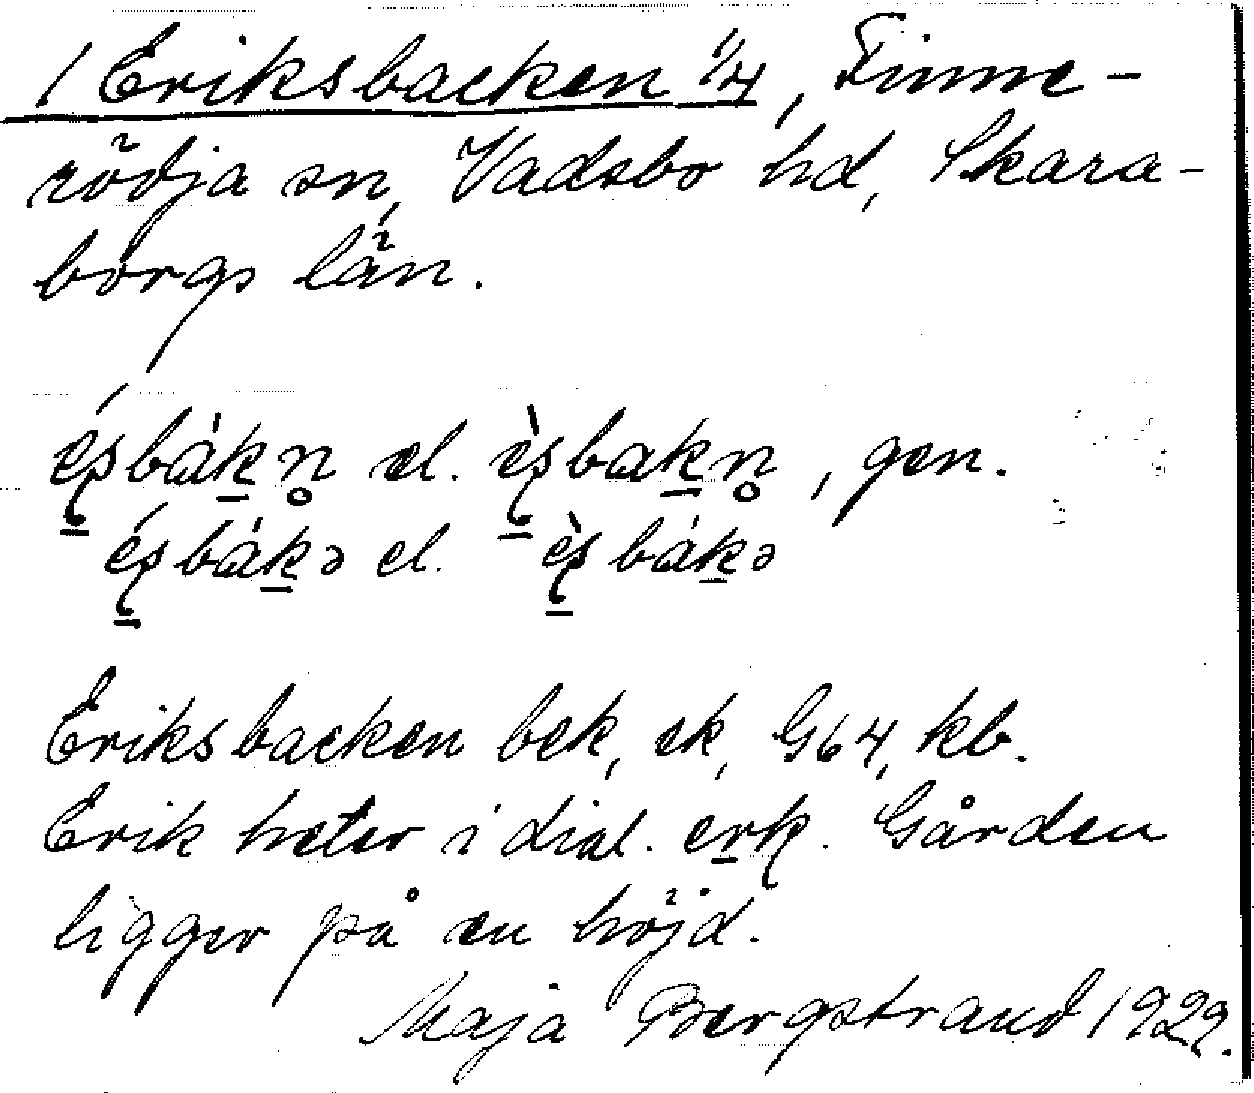 / Eriksbacken 1/4, Finne-
rödja sn, Vadsbo hd, Skara-
borgs län.
ésbàkn̥ el. èsbakn̥, gen.
ésbàkə el. èsbákə
Eriksbacken bek, ek, G64, kb.
Erik heter i dial. erk. Gården
ligger på en höjd.
Maja Bergstrand 1929.